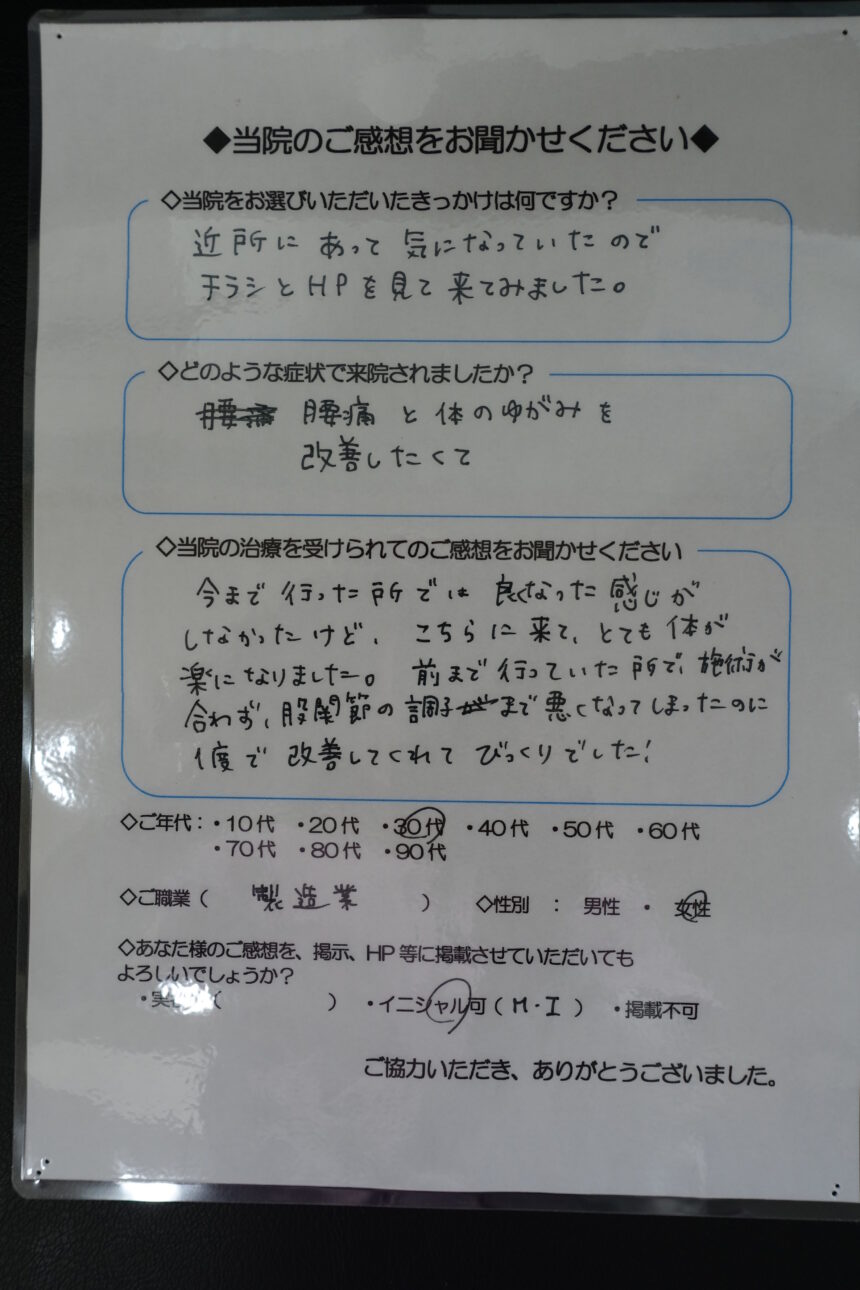 ◆当院のご感想をお聞かせください◆
◇当院をお選びいただいたきっかけは何ですか？
近所にあって気になっていたので
チラシとHPを見て来てみました。
◇どのような症状で来院されましたか？
腰痛と体のゆがみを
改善したくて
◇当院の治療を受けられてのご感想をお聞かせください
今まで行った所では良くなった感じが
しなかったけど、こちらに来て、とても体が
楽になりました。前まで行っていた所で、施術が
合わず、股関節の調子まで悪くなってしまったのに
1度で改善してくれてびっくりでした!
◇ご年代：・10代 ・20代 ・30代 ・40代 ・50代 ・60代
・70代 ・80代 ・90代
◇ご職業（ 製造業 ） ◇性別 ： 男性 ・ 女性
◇あなた様のご感想を、掲示、HP等に掲載させていただいても
よろしいでしょうか？
・実（ ） ・イニシャル可（M・I） ・掲載不可
ご協力いただき、ありがとうございました。